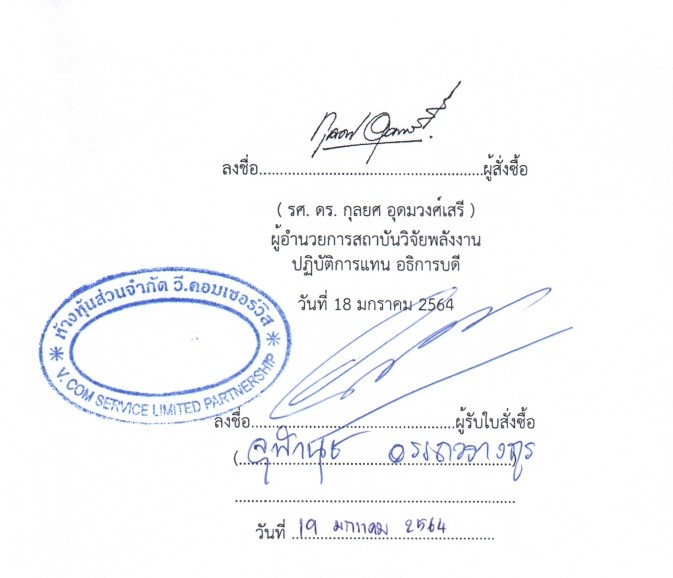 ลงชื่อ................................................ผู้สั่งซื้อ
( รศ. ดร. กุลยศ อุดมวงศ์เสรี )
ผู้อำนวยการสถาบันวิจัยพลังงาน
ปฏิบัติการแทน อธิการบดี
วันที่ 18 มกราคม 2564
ห้างหุ้นส่วนจำกัด วี.คอมเซอร์วิส
V. COM SERVICE LIMITED PARTNERSHIP
ลงชื่อ................................................ผู้รับใบสั่งซื้อ
วันที่ 19 มกราคม 2564